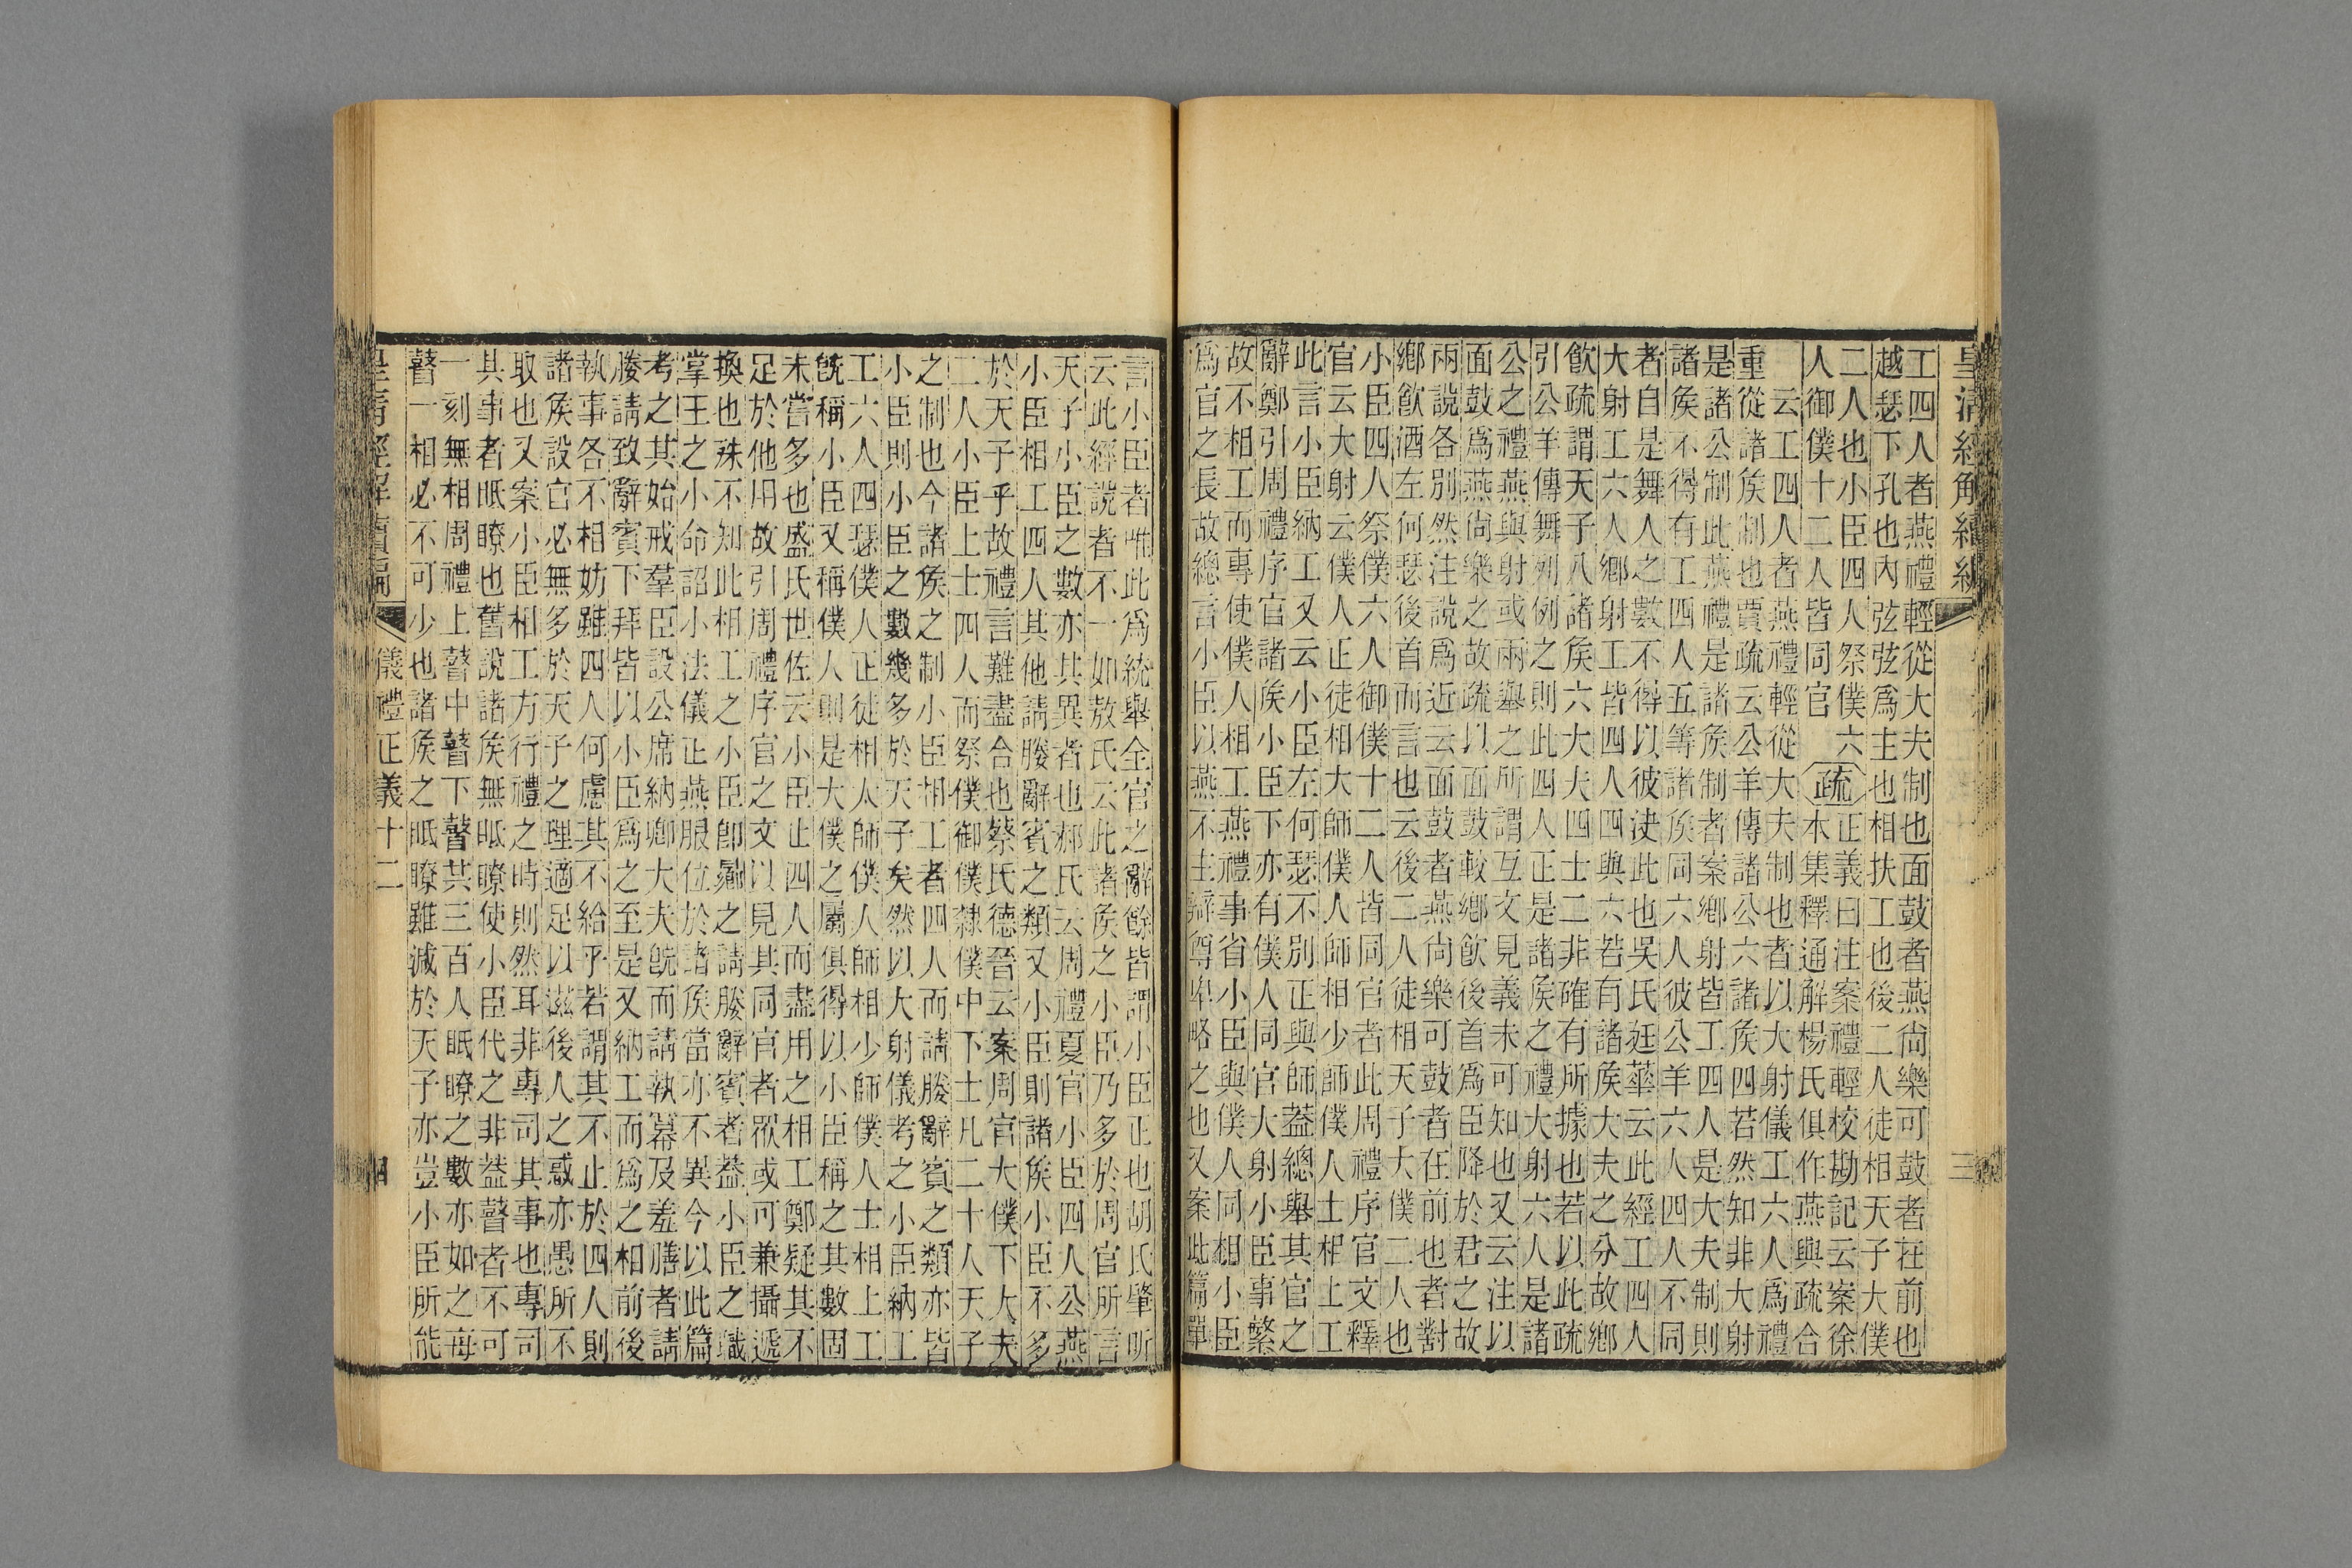 皇清經解續編 三
工四人者燕禮輕從大夫制也面鼓者燕尙樂可鼓者在前也
越瑟下孔也內弦弦爲主也相扶工也後二人徒相天子大僕
二人也小臣四人祭僕六
人御僕十二人皆同官
疏
正義曰注案禮輕校勘記云案徐
本集釋通解楊氏俱作燕與疏合
云工四人者燕禮輕從大夫制也者以大射儀工六人爲禮
重從諸矦制也賈疏云公羊傳諸公六諸矦四若然知非大射
是諸公制此燕禮是諸矦制者案鄉射皆工四人是大夫制則
諸矦不得有工四人五等諸矦同六人彼公羊六人四人不同
者自是舞人之數不得以彼決此也吳氏廷華云此經工四人
大射工六人鄉射工皆四人四與六若有諸矦大夫之分故鄉
飮疏謂天子八諸矦六大夫四士二非確有所據也若以此疏
引公羊傳舞列例之則此四人正是諸矦之禮大射六人是諸
公之禮燕與射或兩舉之所謂互文見義未可知也又云注以
面鼓爲燕尙樂之故疏以面鼓較鄉飮後首爲臣降於君之故
兩說各別然注說爲近云面鼓者燕尙樂可鼓者在前也者對
鄉飮酒左何瑟後首而言也云後二人徒相天子大僕二人也
小臣四人祭僕六人御僕十二人皆同官者此周禮序官文釋
官云大射云僕人正徒相大師僕人師相少師僕人士相上工
此言小臣納工又云小臣左何瑟不別正與師葢總舉其官之
辭鄭引周禮序官諸矦小臣下亦有僕人同官大射小臣事繁
故不相工而專使僕人相工燕禮事省小臣與僕人同相小臣
爲官之長故總言小臣以燕不主辯尊卑略之也又案此篇單
言小臣者唯此爲統舉全官之辭餘皆謂小臣正也胡氏肇昕
云此經說者不一如敖氏云此諸矦之小臣乃多於周官所言
天子小臣之數亦其異者也郝氏云周禮夏官小臣四人公燕
小臣相工四人其他請媵辭賓之類又小臣則諸矦小臣不多
於天子乎故禮言難盡合也蔡氏德晉云案周官大僕下大夫
二人小臣上士四人而祭僕御僕隸僕中下士凡二十人天子
之制也今諸矦之制小臣相工者四人而請媵辭賓之類亦皆
小臣則小臣之數幾多於天子矣然以大射儀考之小臣納工
工六人四瑟僕人正徒相太師僕人師相少師僕人士相上工
旣稱小臣又稱僕人則是大僕之屬俱得以小臣稱之其數固
未嘗多也盛氏世佐云小臣止四人而盡用之相工鄭疑其不
足於他用故引周禮序官之文以見其同官者或可兼攝遞
換也殊不知此相工之小臣卽之請媵辭賓者葢小臣之職
掌王之小命詔小法儀正燕服位於諸矦當亦不異今以此篇
考之其始戒羣臣設公席納卿大夫旣而請執冪及羞膳者請
媵請致辭賓下拜皆以小臣爲之至是又納工而爲之相前後
執事各不相妨雖四人何慮其不給乎若謂其不止於四人則
諸矦設官必無多於天子之理適足以滋後人之惑亦愚所不
取也又案小臣相工方行禮之時則然耳非專司其事也專司
其事者眡瞭也舊說諸矦無眡瞭使小臣代之非葢瞽者不可
一刻無相周禮上瞽中瞽下瞽共三百人眡瞭之數亦如之每
瞽一相必不可少也諸矦之眡瞭雖減於天子亦豈小臣所能
皇清經解續編 儀禮正義十二 四